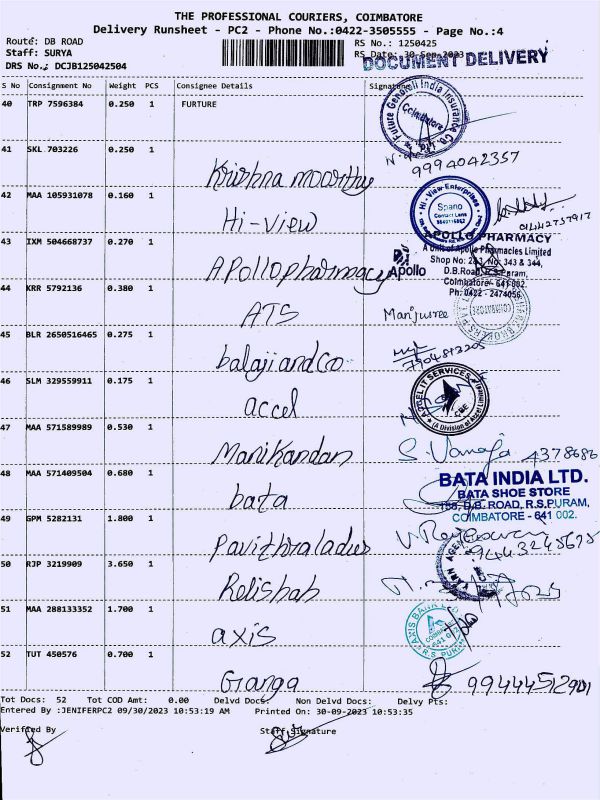 THE PROFESSIONAL COURIERS, COIMBATORE
Delivery Runsheet - PC2 - Phone No.:0422-3505555 - Page No.:4
Route: DB ROAD RS No.: 1250425
Staff: SURYA RS Date: 30-Sep-2023
DOCUMENT DELIVERY
DRS No.: DCJB125042504
S No Consignment No Weight PCS Consignee Details Signature
40 TRP 7596384 0.250 1 FURTURE
Future Generali India Insurance Co.
Coimbatore
9994042357
41 SKL 703226 0.250 1
Krishna moorthy
42 MAA 105931078 0.160 1
Hi-View
Hi - View Enterprises
Spano
Contact Lens
43 IXM 504668737 0.270 1
APollo pharmacy
APOLLO PHARMACY
A Unit of Apollo Pharmacies Limited
Shop No: 243, No: 343 & 344,
D.B.Road, R.S.Puram,
Coimbatore- 641 002.
Ph: 0422 - 2474056
Apollo
44 KRR 5792136 0.380 1
ATS
Manjusree
45 BLR 2650516465 0.275 1
balaji and Co
7904812205
46 SLM 329559911 0.175 1
accel
ACCEL IT SERVICES
(A Division of Accel Limited)
CBE
47 MAA 571589989 0.530 1
Manikandan
S. Vanaja 4378686
48 MAA 571409504 0.680 1
bata
BATA INDIA LTD.
BATA SHOE STORE
188, D.B. ROAD, R.S.PURAM,
COIMBATORE - 641 002.
49 GPM 5282131 1.800 1
Pavithra ladies
9443245675
50 RJP 3219909 3.650 1
Relishah
51 MAA 288133352 1.700 1
axis
AXIS BANK
R.S. PURAM
52 TUT 450576 0.700 1
Ganga
99444512901
Tot Docs: 52 Tot COD Amt: 0.00 Delvd Docs: Non Delvd Docs: Delvy Pts:
Entered By :JENIFERPC2 09/30/2023 10:53:19 AM Printed On: 30-09-2023 10:53:35
Verified By Staff Signature